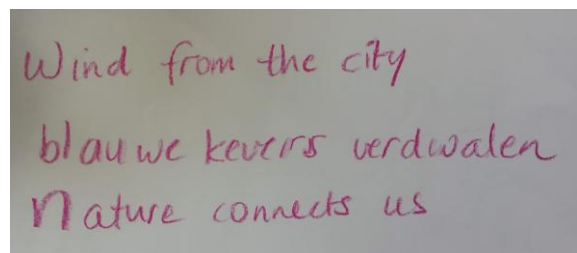 Wind from the city
blauwe kevers verdwalen
Nature connects us